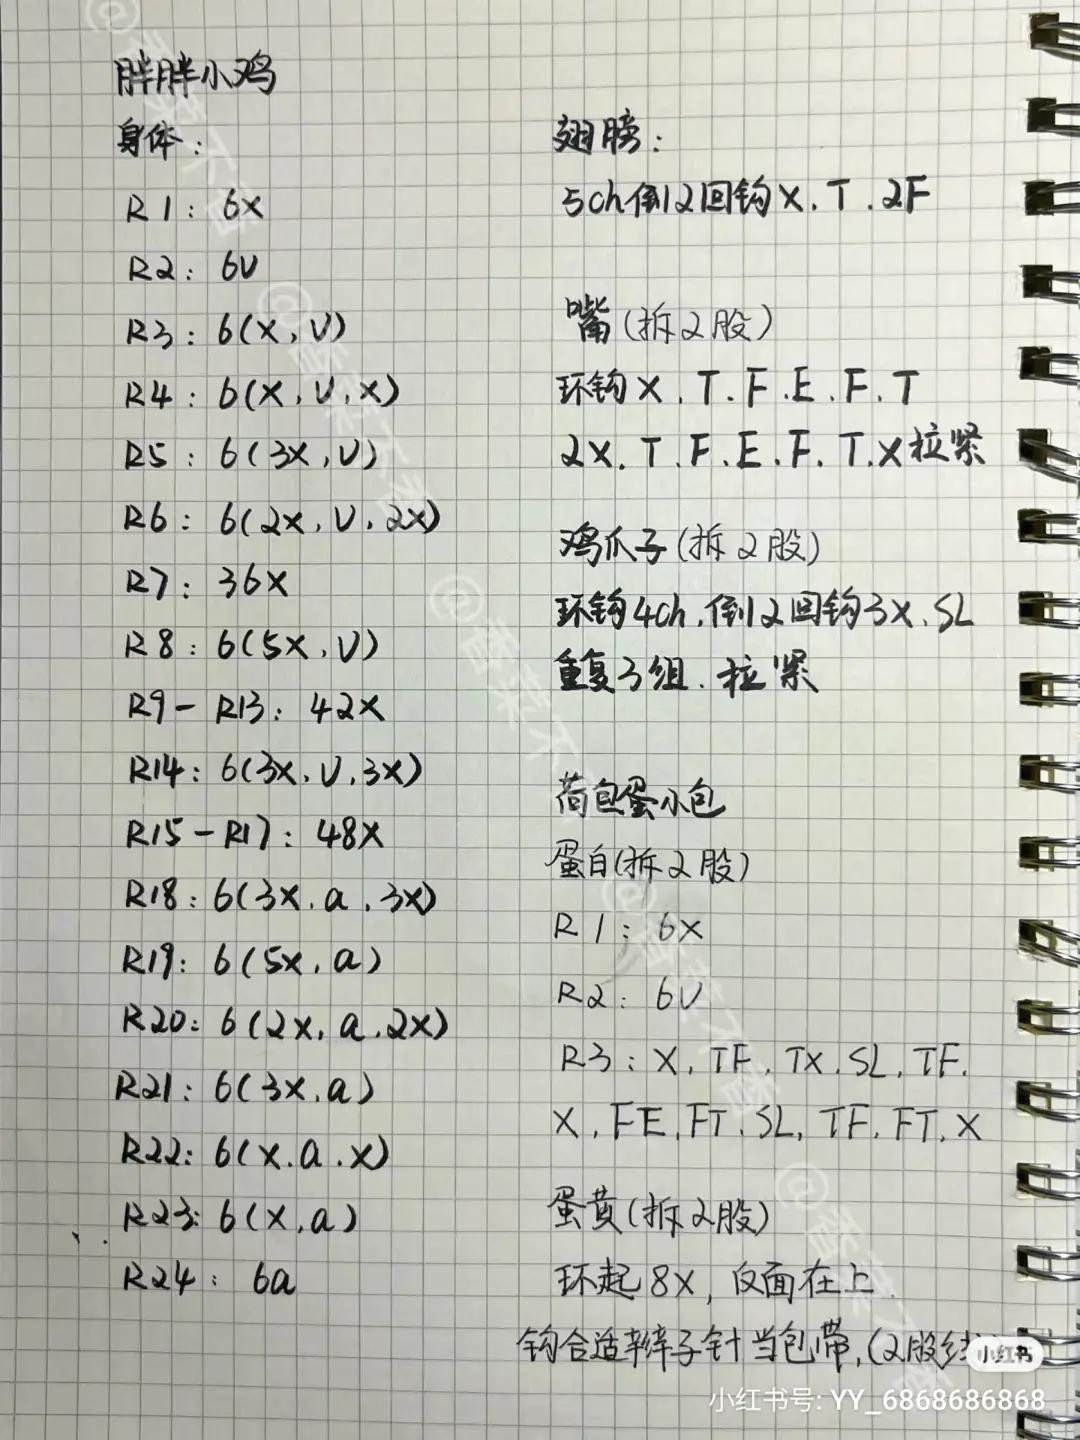 胖胖小鸡
身体:
R1: 6X
R2: 6V
R3: 6(X,V)
R4: 6(X,V,X)
R5: 6(3X,V)
R6: 6(2X,V,2X)
R7: 36X
R8: 6(5X,V)
R9-R13: 42X
R14: 6(3X,V,3X)
R15-R17: 48X
R18: 6(3X.a.3X)
R19: 6(5X,a)
R20: 6(2X,a.2X)
R21: 6(3X.a)
R22: 6(X.a.X)
R23: 6(X,a)
R24: 6a
翅膀:
5ch倒2回钩X.T.2F
嘴(拆2股)
环钩X.T.F.E.F.T
2X.T.F.E.F.T.X拉紧
鸡爪子(拆2股)
环钩4ch.倒2回钩3X.SL
重复3组.拉紧
荷包蛋小包
蛋白(拆2股)
R1: 6X
R2: 6V
R3: X.TF.TX.SL.TF.
X.FE.FT.SL.TF.FT.X
蛋黄(拆2股)
环起8X,反面在上.
钩合适辫子针当包带,(2股线
小红书
小红书号: YY_6868686868
@香菜不香
@香菜不香
@香菜不香
@香菜不香
@香菜不香